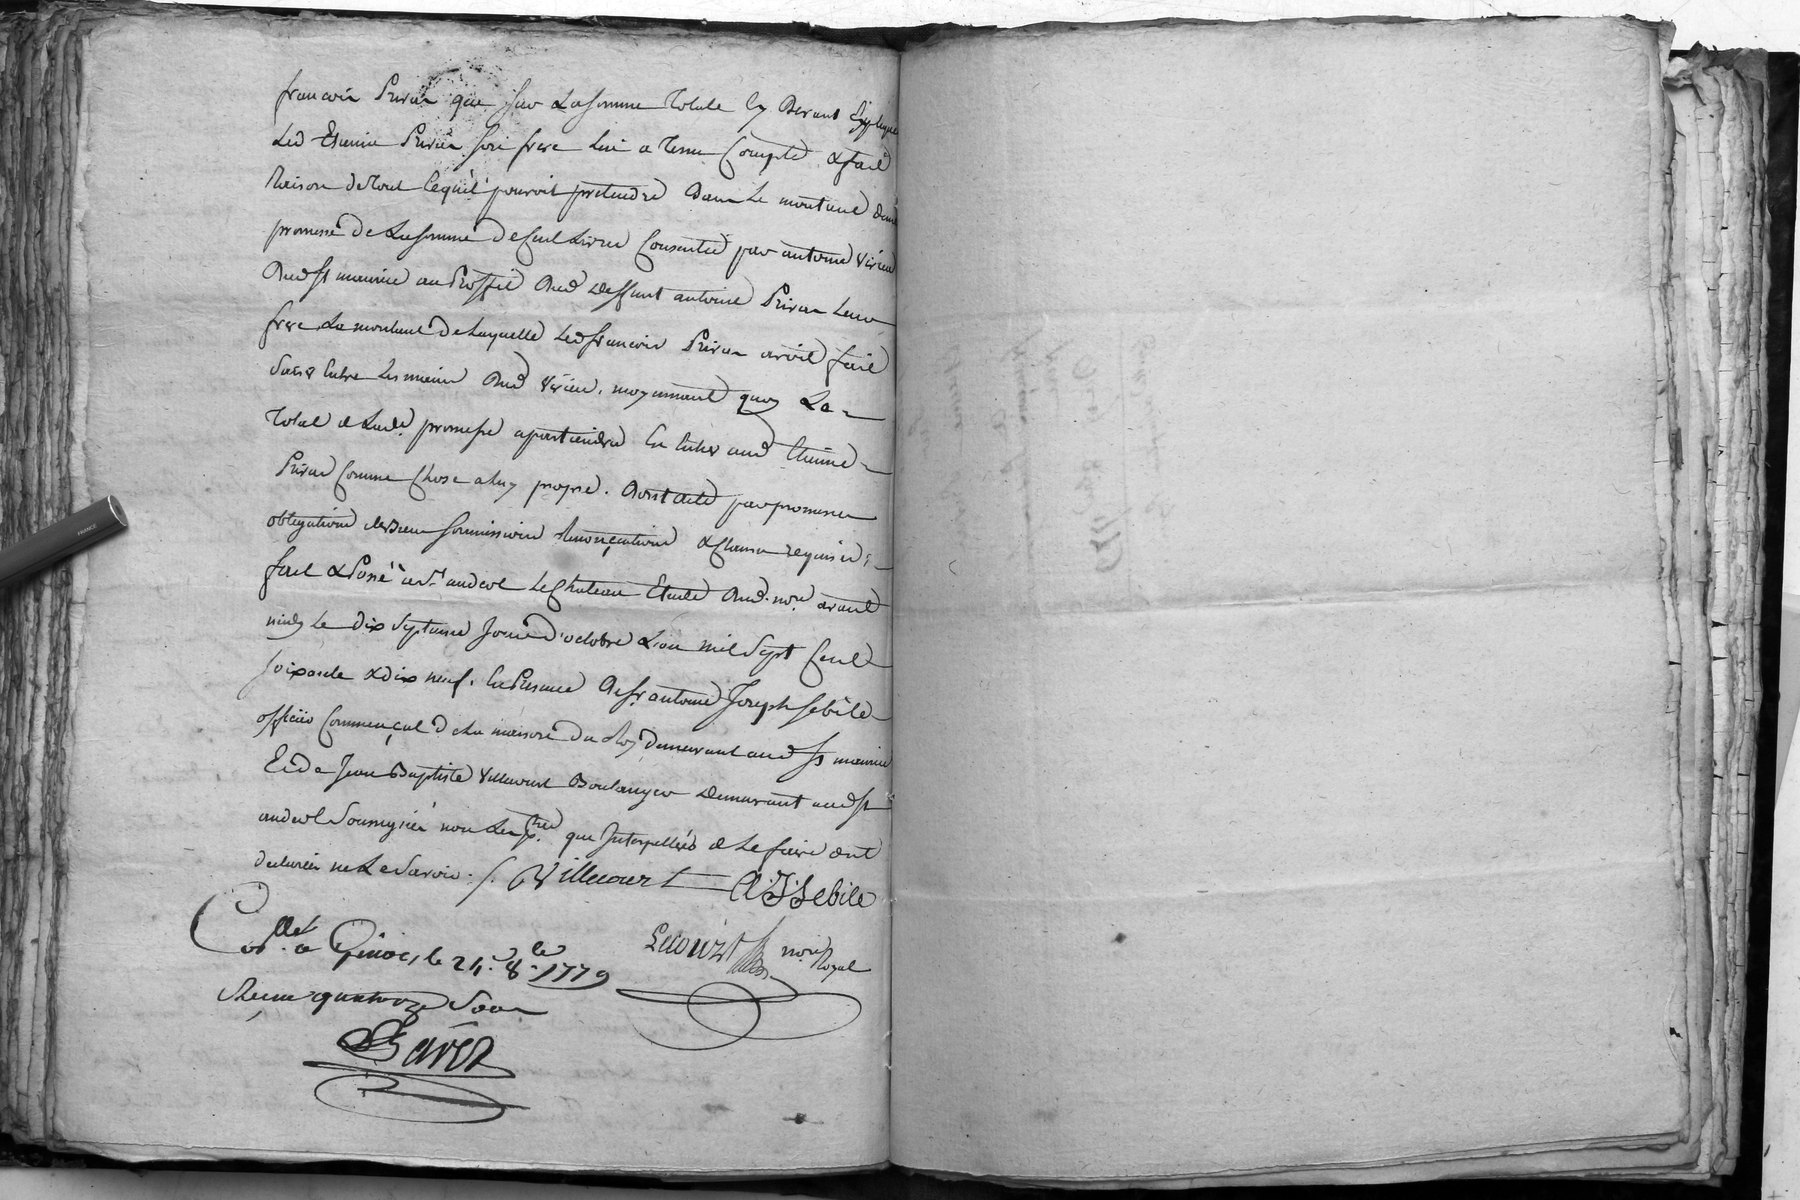 francois Privat que sur La somme totale cy devant Expliquée
Led Etienne Privat son frere Lui a tenu Compte & fait
Raison de tout Cequil pouvoit pretendre dans Le montant dune
promesse de La somme de Cent Livres Consentie par antoine
dud St maurice au Proffit dud deffunt antoine Privat Leur
frere Le montant de Laquelle Led francois Privat avoit fait
saisir Entre Les mains dud moyennant quoy La
total de Lad. promesse apartiendra En Entier aud Etienne
Privat Comme Chose a Luy propre. dont acte par promesses
obligations soumissions Renonçeations & Clauses requises;
fait & Passé a St. andeol Le Chateau Etude dud. nore. avant
midy Le dix septieme Jour d'octobre L'an mil Sept Cent
soixante & dix neuf. En Presence de sr. antoine Joseph Sebile
officier Commençal de La maison du Roy demeurant aud St maurice
Et de Jean Baptiste Villecourt Boulanger demeurant aud St
andeol Soussignés non Les pties. que Interpellées de Le faire ont
declarées ne Le Savoir. /. Villecourt A. J. Sebile
Conllé. a Givors, le 24. 8.bre 1779
Reçu quatorze Sous
nore. Royal